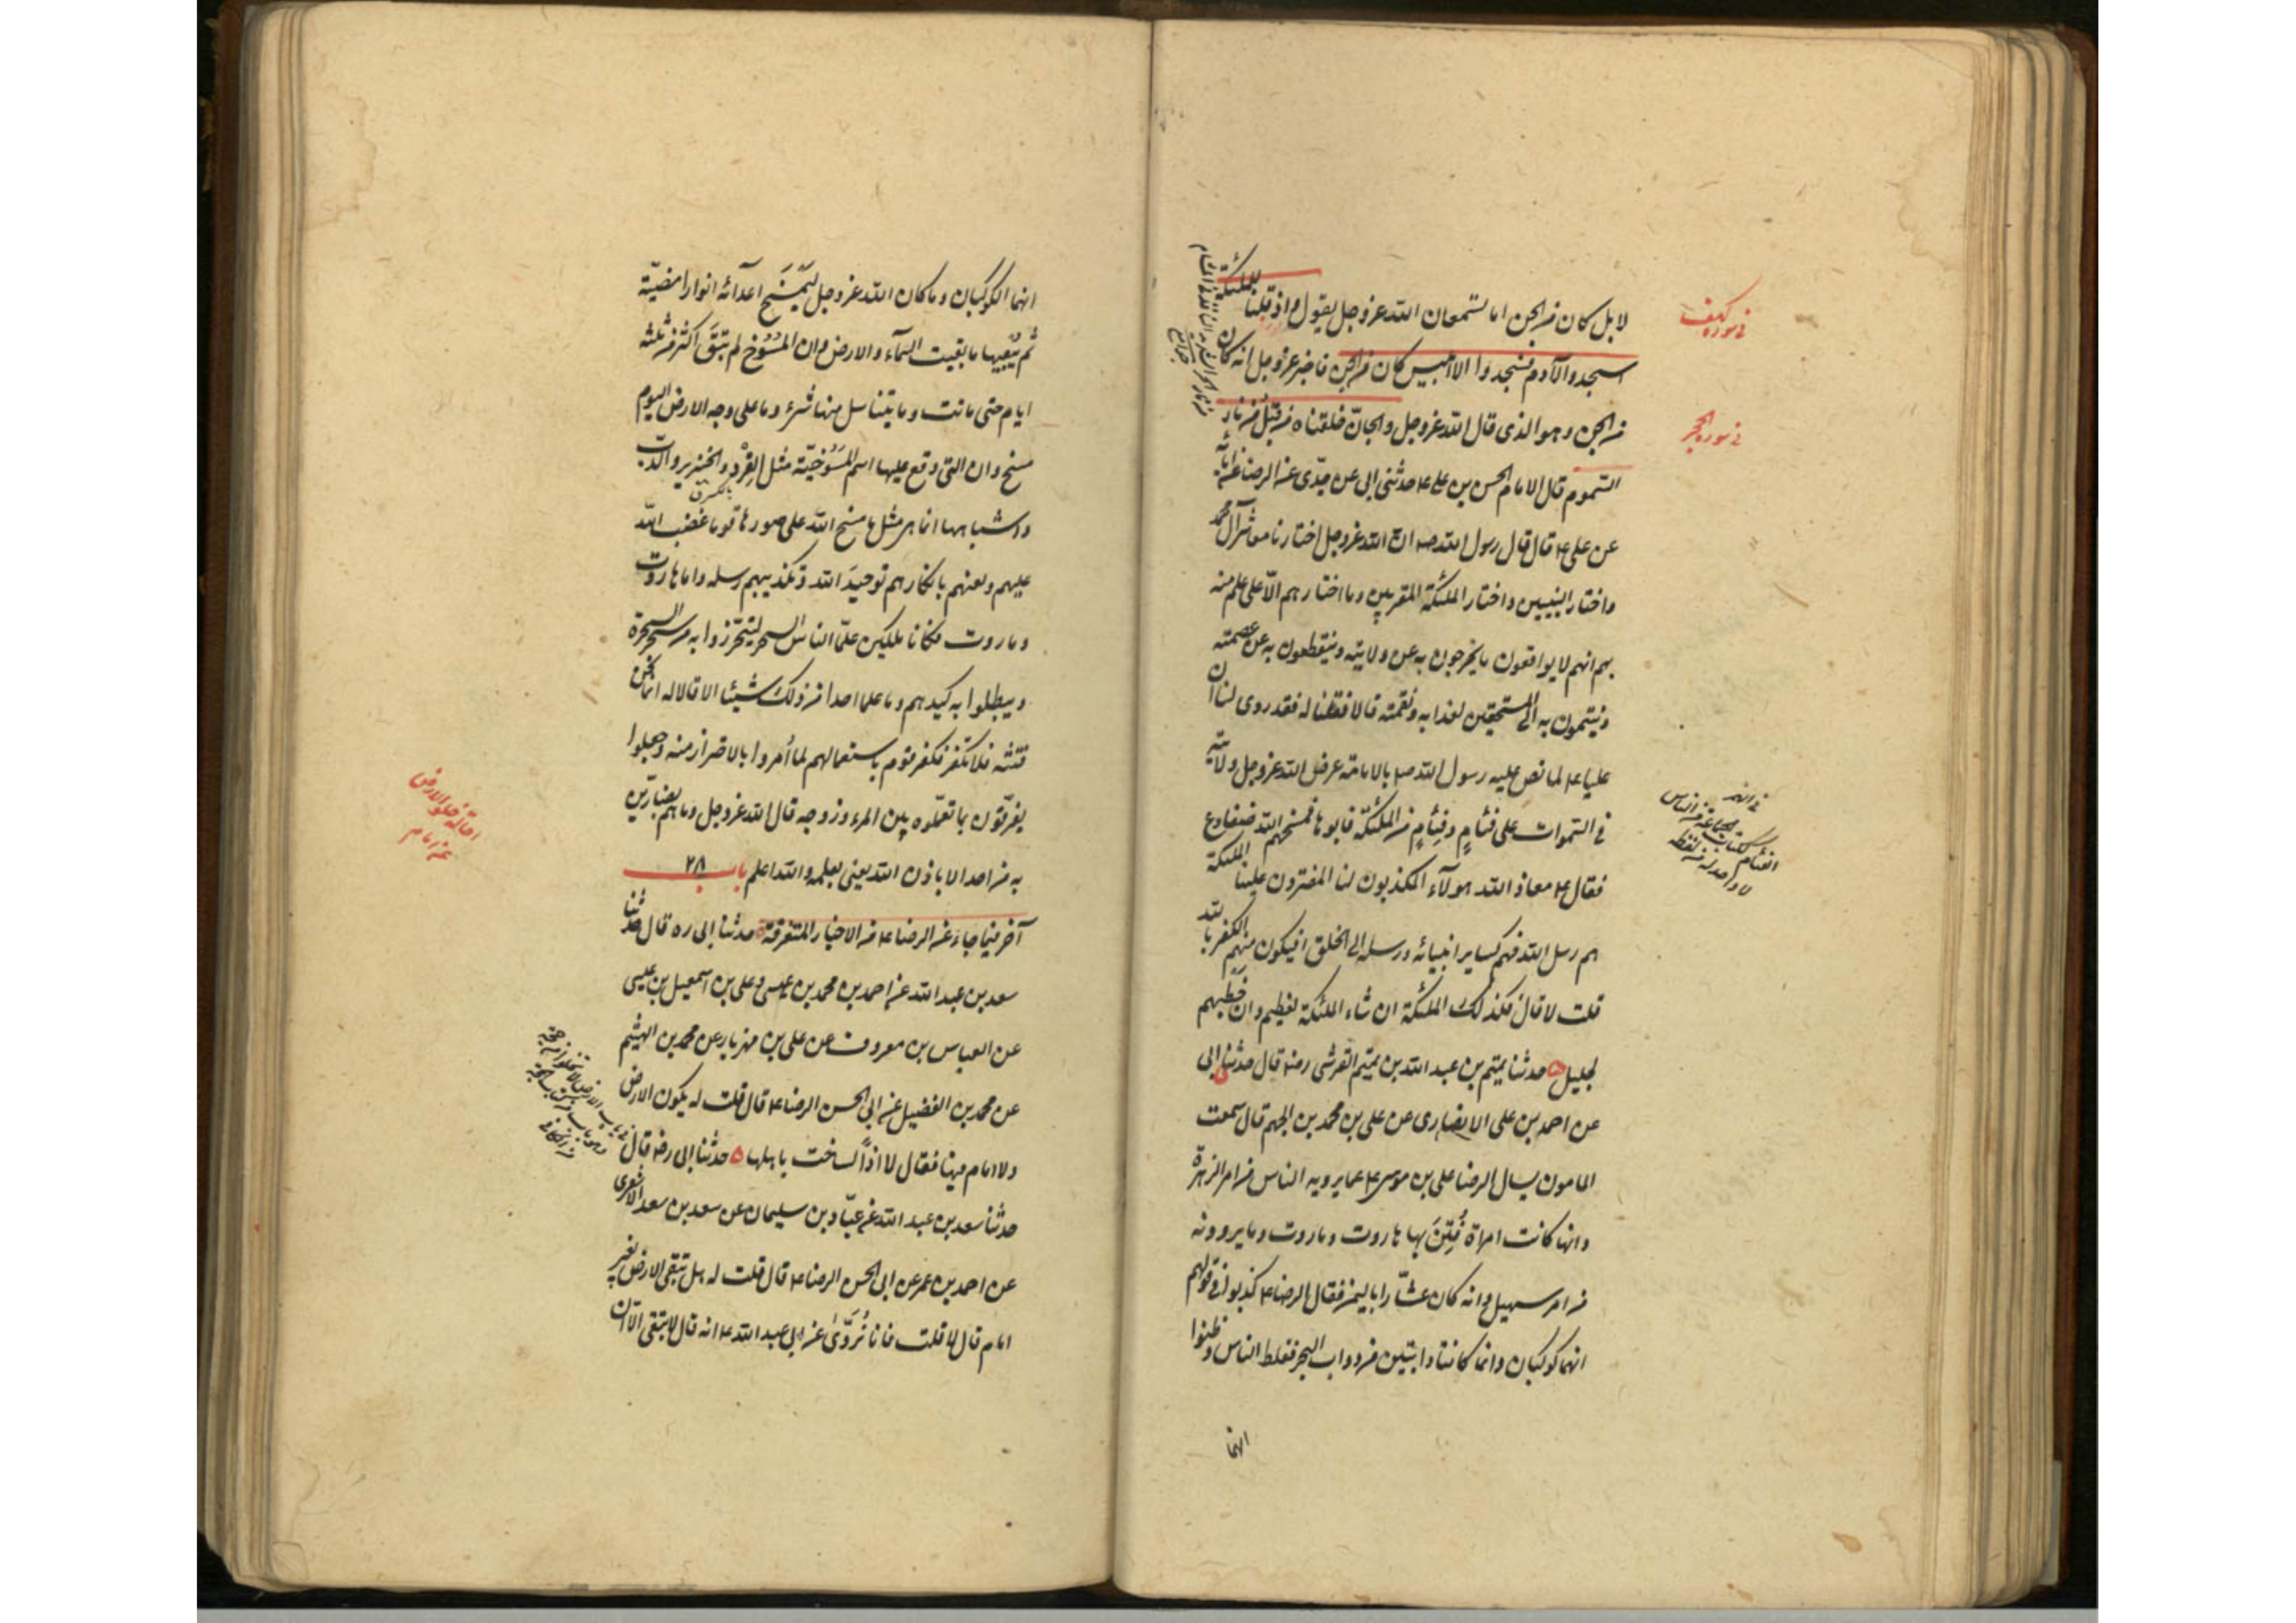 في سورة كهف
لا بل كان من الجن اما تستمعان الله عز وجل يقول و اذ قلنا للملئكة
اسجدوا لآدم فسجدوا الا ابليس كان من الجن فاخبر عز وجل انه كان
في سورة الحجر
من الجن و هو الذي قال الله عز وجل و الجانّ خلقناه من قبل من نار
السموم قال الامام الحسن بن علي ع حدثني ابي عن جدّي عن الرضا عن ابائه
عن علي ع قال قال رسول الله صم ان الله عز وجل اختارنا معاشر آل محمد
و اختار النبيين و اختار الملئكة المقربين و ما اختارهم الّا على علم منه
بهم انهم لا يواقعون ما يخرجون به عن ولايته و ينقطعون به عن عصمته
و ينتمون به الى المستحقين لعذابه و نقمته قالا فقلنا له فقد روى لنا ان
عليا ع لما نص عليه رسول الله صم بالامامة عرض الله عز وجل ولايته
في السموات على فئام و فئام من الملئكة فابوها فمسخهم الله ضفادع
فقال ع معاذ الله هولآء المكذبون لنا المفترون علينا الملئكة
هم رسل الله فهم كساير انبيائه و رسله الى الخلق افيكون منهم الكفر بالله
قلت لا قال فكذلك الملئكة ان شاء الملئكة لعظيم و ان خطبهم
لجليل ه حدثنا تميم بن عبد الله بن تميم القرشي رضه قال حدثني ابي
عن احمد بن علي الانصاري عن علي بن محمد بن الجهم قال سمعت
المامون يسال الرضا علي بن موسى ع عما يرويه الناس من امر الزهرة
و انها كانت امراة فُتِنَ بها هاروت و ماروت و ما يروونه
من امر سهيل و انه كان عشّارا باليمن فقال الرضا ع كذبوا في قولهم
انهما كوكبان و انما كانتا دابتين من دواب البحر فغلط الناس و ظنوا
انهما
في النهر
الفئام ككتاب الجماعة من الناس
لا واحد له من لفظه
انهما الكوكبان و ما كان الله عز وجل ليَمسَخ اعدآئه انوارا مضيّة
ثم يُبقيها ما بقيت السمآء و الارض و ان المُسُوخ لم تَبقَ اكثر من ثلثة
ايام حتى ماتت و ما يتناسل منها شىء و ما على وجه الارض اليوم
مسخ و ان التي وقع عليها اسم المسوخيّة مثل القِرْد و الخنزير و الدبّ
و اشباهها انما هي مثل ما مسخ الله على صورها قوما غضب الله
عليهم و لعنهم بانكارهم توحيدَ الله و تكذيبهم رسله و اما هاروت
و ماروت فكانا ملكين علّما الناس السحر ليتحرّزوا به من سحر السحرة
و يبطلوا به كيدهم و ما علما احدا من ذلك شيئا الا قالا له انما نحن
فتنة فلا تكفر فكفر قوم باستعمالهم لما أمروا بالاحتراز منه و جعلوا
يفرّقون بما تعلّموه بين المرء و زوجه قال الله عز وجل و ما هم بضارّين
به من احد الا باذن الله يعني بعلمه و الله اعلم باب ٢٨
آخر فيما جاء عن الرضا ع من الاخبار المتفرقة ه حدثنا ابي ره قال حدثنا
سعد بن عبد الله عن احمد بن محمد بن عيسى و علي بن اسمعيل بن عيسى
عن العباس بن معروف عن علي بن مهزيار عن محمد بن الهيثم
عن محمد بن الفضيل عن ابي الحسن الرضا ع قال قلت له يكون الارض
و لا امام فيها فقال لا اذاً لساخت باهلها ه حدثنا ابي رضه قال
حدثنا سعد بن عبد الله عن عبّاد بن سليمان عن سعد بن سعد الاشعري
عن احمد بن عمر عن ابي الحسن الرضا ع قال قلت له هل تبقى الارض بغير
امام قال لا قلت فانا نُرَوّى عن ابي عبد الله ع انه قال لا تبقى الّا ان
خلو الارض
عن امام